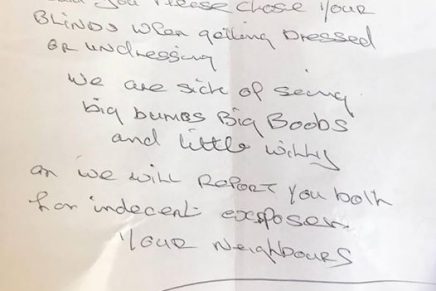 you Please Close Your
BLINDS WHEN getting DRESSED
OR UNDRESSING
WE are sick of seing
big bumbs Big Boobs
and little willy
WE WILL REPORT You both
for indecent exposer
YOUR NEIGHBOURS